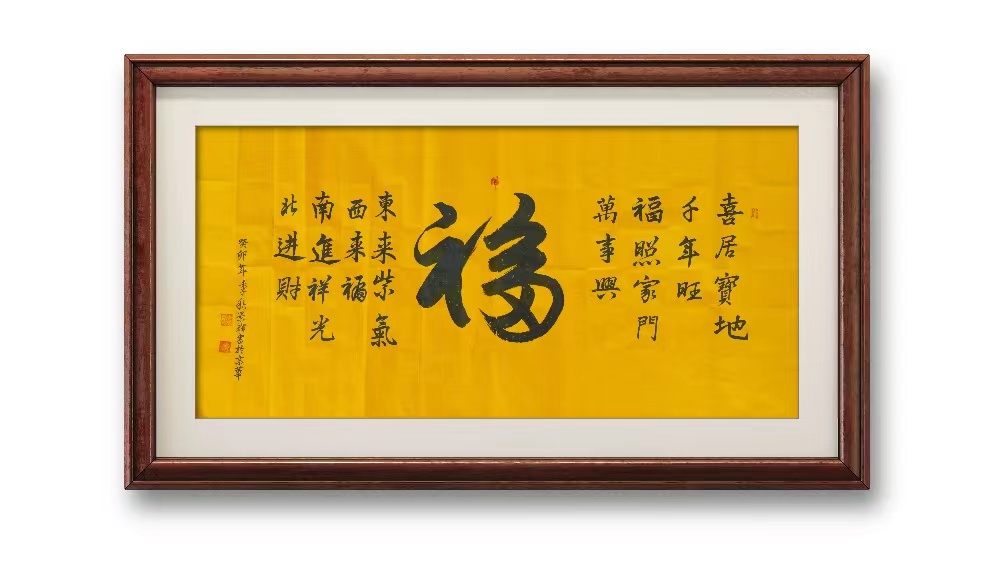 喜居寶地
千年旺
福照家門
萬事興
福
東来紫氣
西来福
南進祥光
北进財
癸卯年季秋書於京華